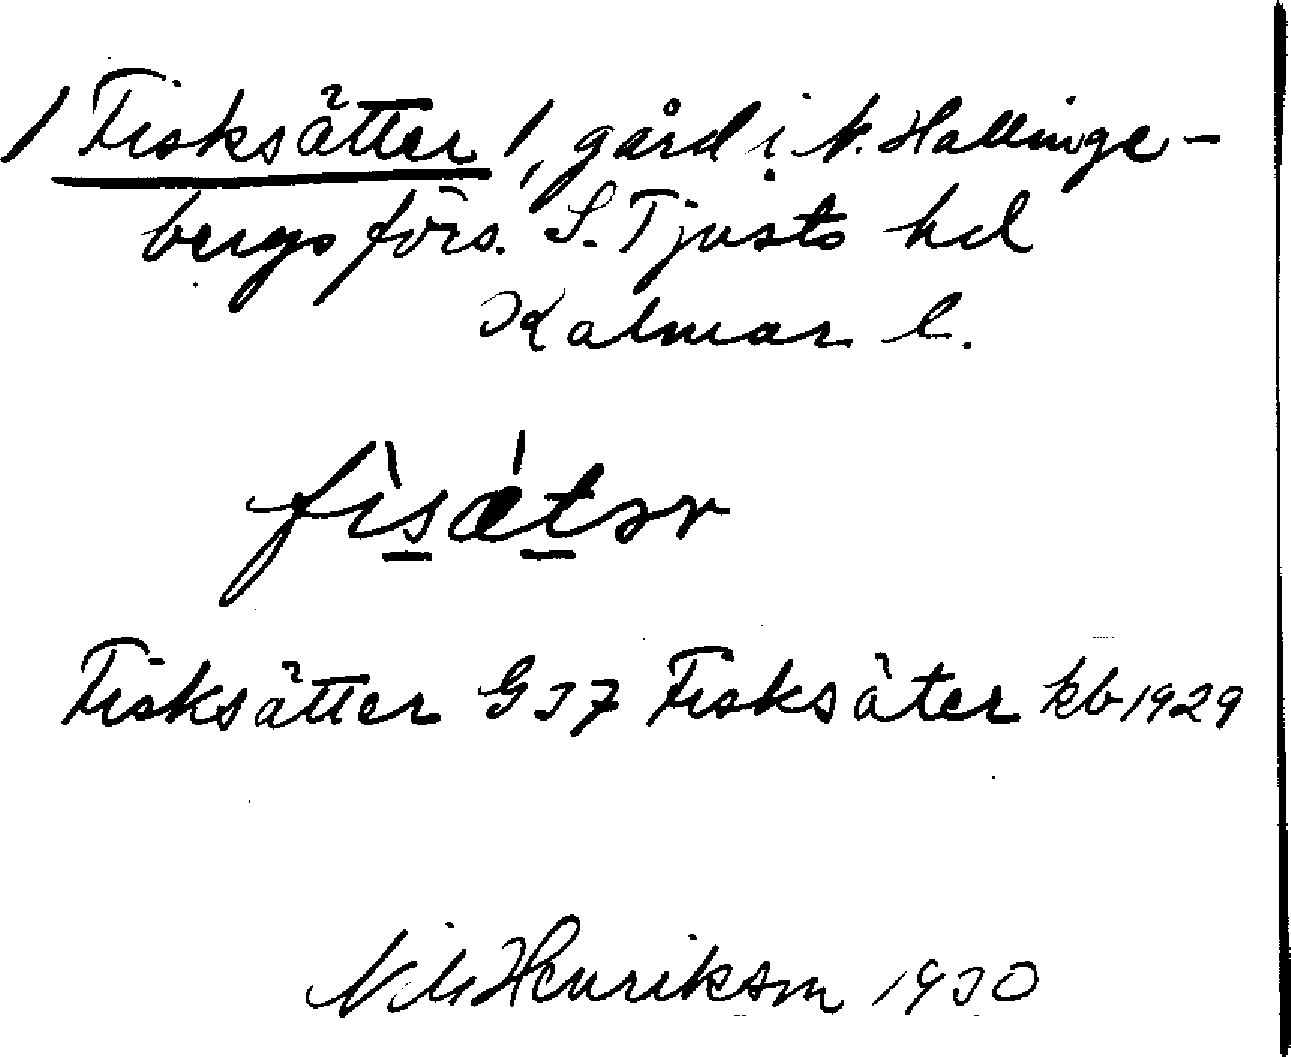 / Fisksätter /, gård i V. Hallinge-
bergs förs. S. Tjusts hd
Kalmar l.
fìsǽtər
Fisksätter GJ7 Fisksäter kb 1929
Nils Henrikson 1930